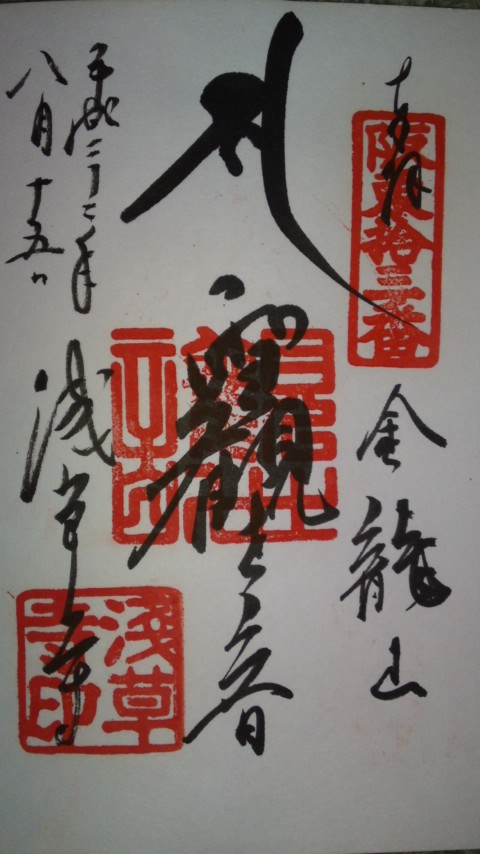 奉拝
阪東拾三番
金龍山
聖観世音
浅草寺
淺草寺印
平成二十二年
八月十五日